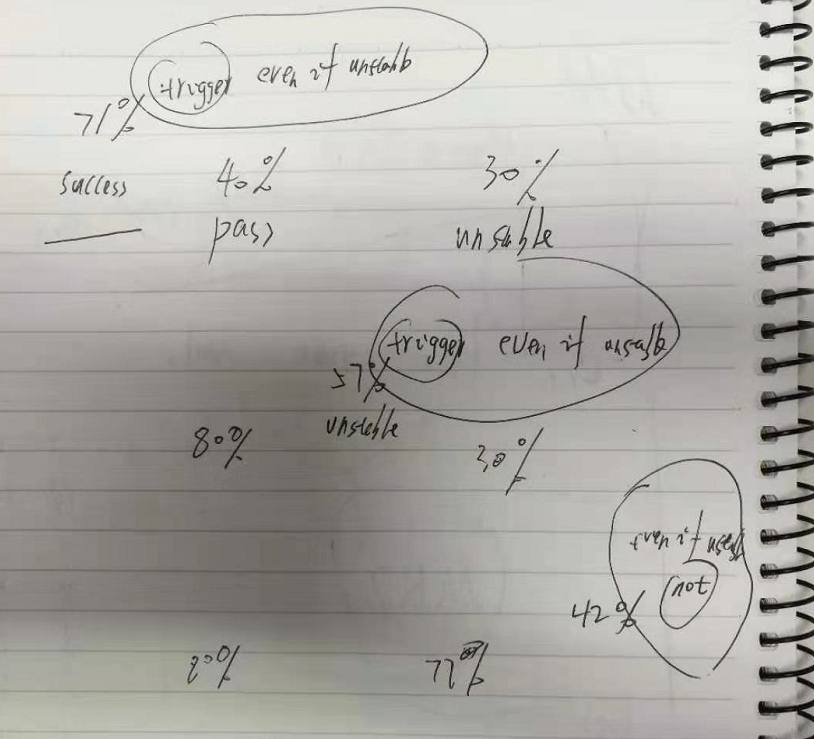 trigger even if unstable
71%
success 40% 30%
pass unsable
trigger even if unsable
57%
unstable
80% 30%
even if
not
42%
80% 77%